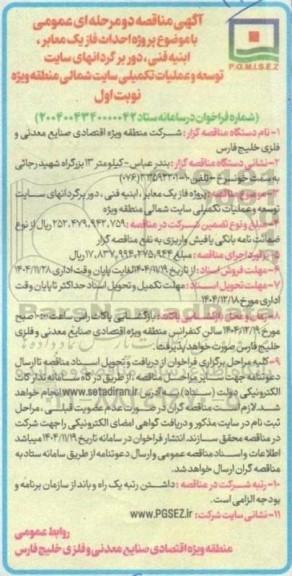 P.G.M.I.S.E.Z
آگهی مناقصه دو مرحله ای عمومی
با موضوع پروژه احداث فاز یک معابر ،
ابنیه فنی ، دور بر گردانهای سایت
توسعه و عملیات تکمیلی سایت شمالی منطقه ویژه
نوبت اول
(شماره فراخوان در سامانه ستاد ۲۰۰۴۰۰۴۳۴۰۰۰۰۰۴۲)
۱- نام دستگاه مناقصه گزار : شرکت منطقه ویژه اقتصادی صنایع معدنی و
فلزی خلیج فارس
۲- نشانی دستگاه مناقصه گزار : بندرعباس - کیلومتر ۱۳ بزرگراه شهید رجائی
به سمت خونسرخ - تلفن
۳- موضوع مناقصه : پروژه فاز یک معابر ، ابنیه فنی ، دور برگردانهای سایت
توسعه و عملیات تکمیلی سایت شمالی منطقه ویژه
۴- مبلغ و نوع تضمین شرکت در مناقصه : ۲۵۲،۴۷۹،۹۴۲،۷۵۹ ریال از نوع
ضمانت نامه بانکی یا فیش واریزی به نفع مناقصه گزار
۵- برآورد اجرای مناقصه : مبلغ ریال
۶- مهلت فروش اسناد : از تاریخ ۱۴۰۴/۱۱/۱۹ لغایت پایان وقت اداری ۱۴۰۴/۱۱/۲۸
۷- مهلت تحویل اسناد : مهلت تکمیل و تحویل اسناد حداکثر تا پایان وقت
اداری مورخ ۱۴۰۴/۱۲/۱۸
بازگشایی پاکات راس ساعت ۱۰:۰۰ صبح
مورخ ۱۴۰۴/۱۲/۱۹ سالن کنفرانس منطقه ویژه اقتصادی صنایع معدنی و فلزی
خلیج فارس صورت خواهد پذیرفت.
۹- کلیه مراحل برگزاری فراخوان از دریافت و تحویل اسناد مناقصه تا ارسال
دعوتنامه جهت سایر مراحل مناقصه ، از طریق درگاه سامانه تدارکات
الکترونیکی دولت (ستاد) به آدرس www.setadiran.ir انجام خواهد
شد. لازم است مناقصه گران در صورت عدم عضویت قبلی ، مراحل
ثبت نام در سایت مذکور و دریافت گواهی امضای الکترونیکی را جهت شرکت
در مناقصه محقق سازند. انتشار فراخوان در سامانه تاریخ ۱۴۰۴/۱۱/۱۹ میباشد
اطلاعات و اسناد مناقصه عمومی و ارسال دعوتنامه از طریق سامانه ستاد به
مناقصه گران ارسال خواهد شد.
۱۰- رتبه شرکت در مناقصه : داشتن رتبه یک راه و باند از سازمان برنامه و
بودجه الزامی است.
۱۱- نشانی سایت شرکت: www.PGSEZ.ir
روابط عمومی
منطقه ویژه اقتصادی صنایع معدنی و فلزی خلیج فارس